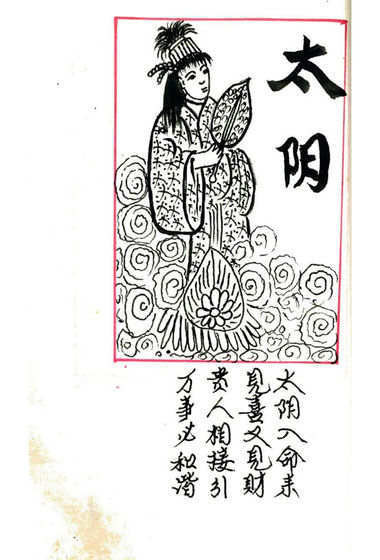 太阴
太阴入命来
见喜又见财
贵人相接引
万事必和谐